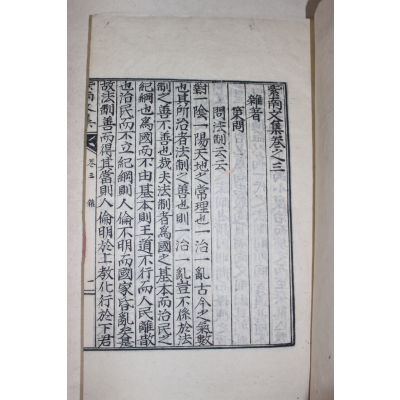 紫南文集卷之三
雜著
策問
問法制云云
對一陰一陽天地之常理也一治一亂古今之氣數
也其所治者法制之善也則一治一亂豈不係於法
制之善不善也哉夫法制者爲國之基本而治民之
紀綱也爲國而不由基本則王道不行而人民離散
也治民而不立紀綱則人倫不明而國家昏亂矣是
故法制善而得其當則人倫明於上教化行於下君
紫南文集
卷三
一